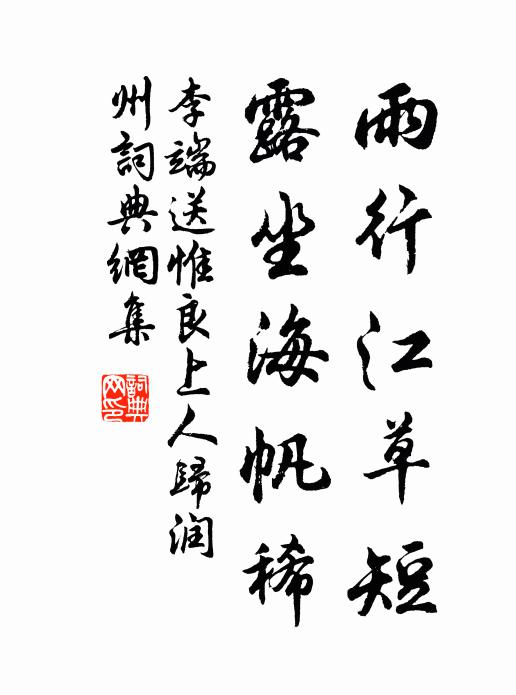 雨行江草短
露坐海帆稀
李端送惟良上人歸润
州詞典網集
詞典网印